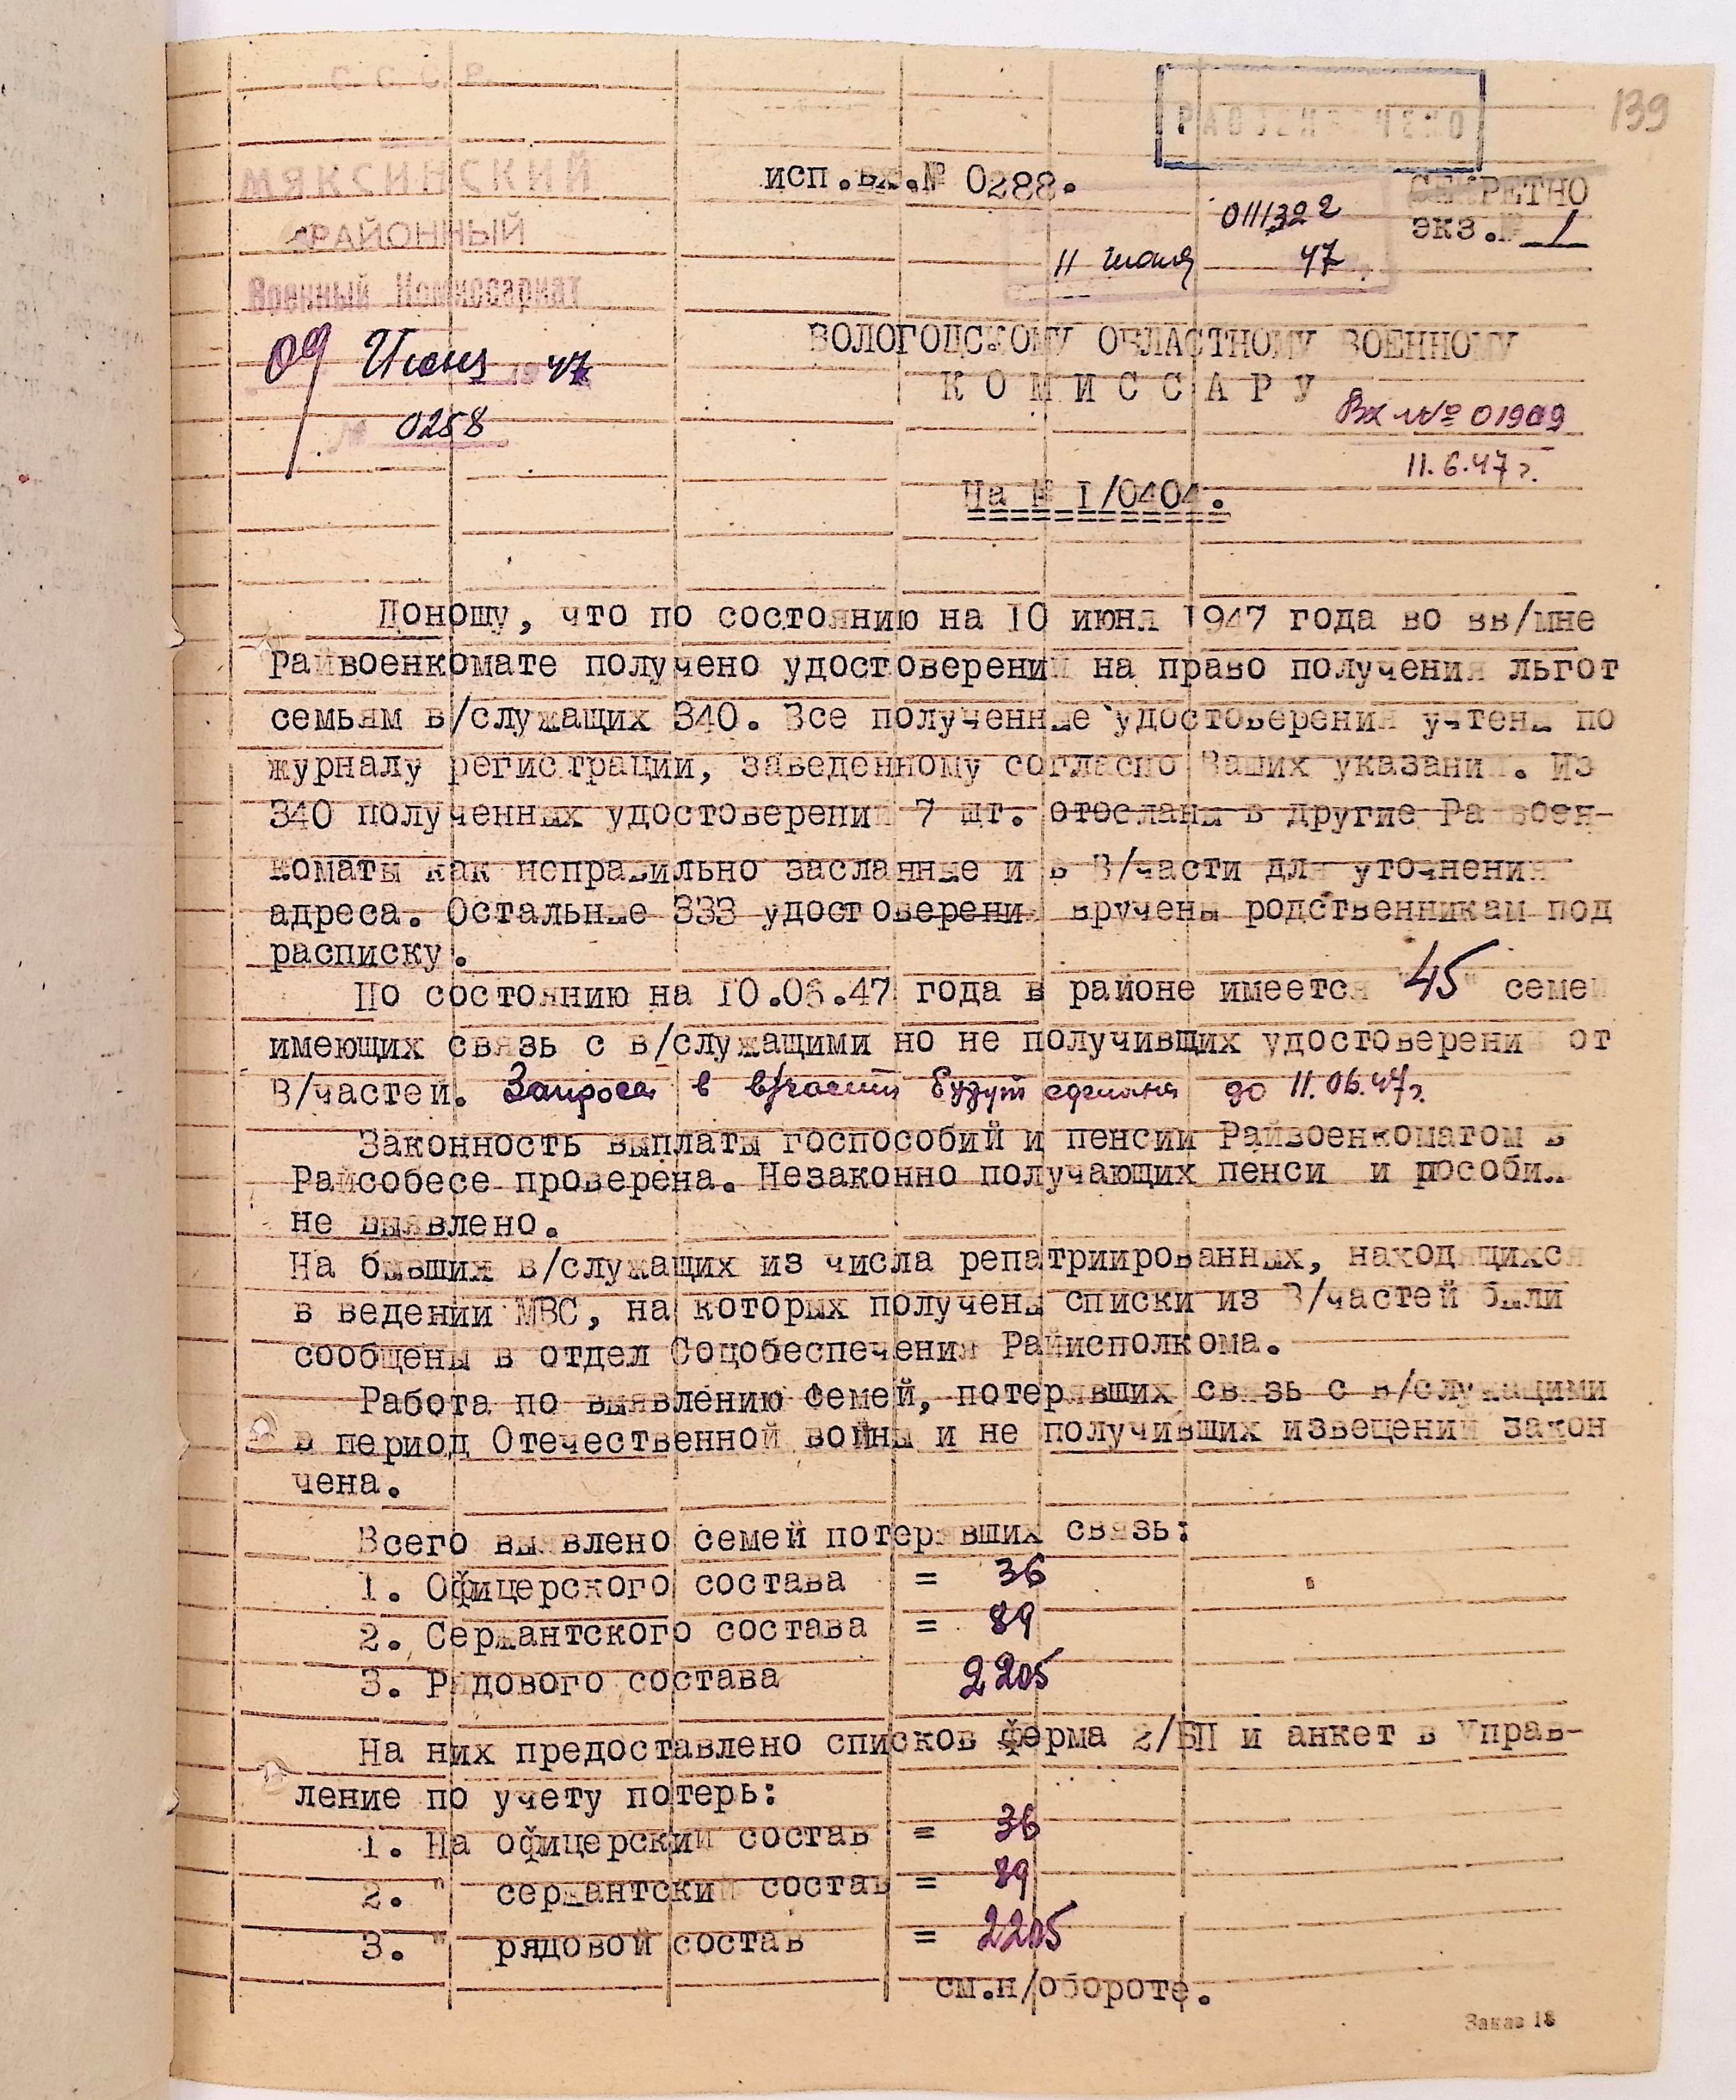 С.С.С.Р.
РАССЕКРЕЧЕНО
139
МЯКСИНСКИЙ
РАЙОННЫЙ
Военный Комиссариат
09 Июня 1947
№ 0258
исп.вх.№ 0288.
СЕКРЕТНО
экз.№ 1
0111322
11 июня 47
ВОЛОГОДСКОМУ ОБЛАСТНОМУ ВОЕННОМУ
КОМИССАРУ
Вх №º 01909
11.6.47 г.
На № I/0404.
Доношу, что по состоянию на 10 июня 1947 года во вв/мне
Райвоенкомате получено удостоверений на право получения льгот
семьям в/служащих 340. Все полученные удостоверения учтены по
журналу регистрации, заведенному согласно Ваших указаний. Из
340 полученных удостоверений 7 шт. отосланы в другие Райвоен-
коматы как неправильно засланные и в В/части для уточнения
адреса. Остальные 333 удостоверения вручены родственникам под
расписку.
По состоянию на 10.06.47 года в районе имеется "45" семей
имеющих связь с в/служащими но не получивших удостоверений от
В/частей. Запроса в в/части будут сделаны до 11.06.47г.
Законность выплаты госпособий и пенсии Райвоенкоматом в
Райсобесе проверена. Незаконно получающих пенси и пособия
не выявлено.
На бывших в/служащих из числа репатриированных, находящихся
в ведении МВС, на которых получены списки из В/частей были
сообщены в отдел Соцобеспечения Райисполкома.
Работа по выявлению семей, потерявших связь с в/служащими
в период Отечественной войны и не получивших извещений закон
чена.
Всего выявлено семей потерявших связь:
1. Офицерского состава = 36
2. Сержантского состава = 89
3. Рядового состава 2205
На них предоставлено списков ферма 2/БП и анкет в Управ-
ление по учету потерь:
1. На офицерский состав = 36
2. " сержантский состав = 89
3. " рядовой состав = 2205
см.н/обороте.
Заказ 18